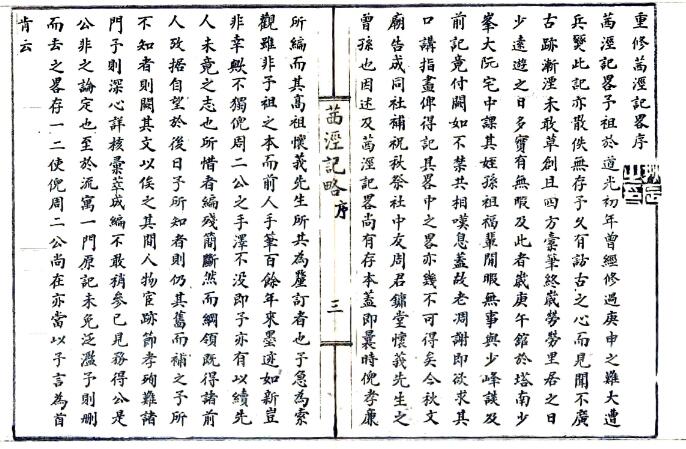 重修茜涇記畧序
茜涇記畧予祖於道光初年曾經修過庚申之難大遭
兵燹此記亦散佚無存予久有訪古之心而見聞不廣
古跡漸湮未敢草創且四方橐筆終歲勞勞里居之日
少遠遊之日多實有無暇及此者歲庚午館於塔南少
峯大阮宅中課其姪孫祖福輩閒暇無事與少峰談及
前記竟付闕如不禁共相嘆息蓋故老凋謝即欲求其
口講指畫俾得記其畧中之畧亦幾不可得矣今秋文
廟告成同社補祝秋祭社中友周君鏞堂懷義先生之
曾孫也因述及茜涇記畧尚有存本蓋即曩時倪孝廉
茜涇記略 序
三
所編而其高祖懷義先生所共為釐訂者也予急為索
觀雖非予祖之本而前人手筆百餘年來墨迹如新豈
非幸歟不獨倪周二公之手澤不没即予亦有以續先
人未竟之志也所惜者編殘簡斷然而綱領既得諸前
人攷据自望於後日予所知者則仍其舊而補之予所
不知者則闕其文以俟之其間人物宦跡節孝殉難諸
門予則深心詳核彙萃成編不敢稍參己見務得公是
公非之論定也至於流寓一門原記未免泛濫予則刪
而去之畧存一二使倪周二公尚在亦當以予言為首
肯云